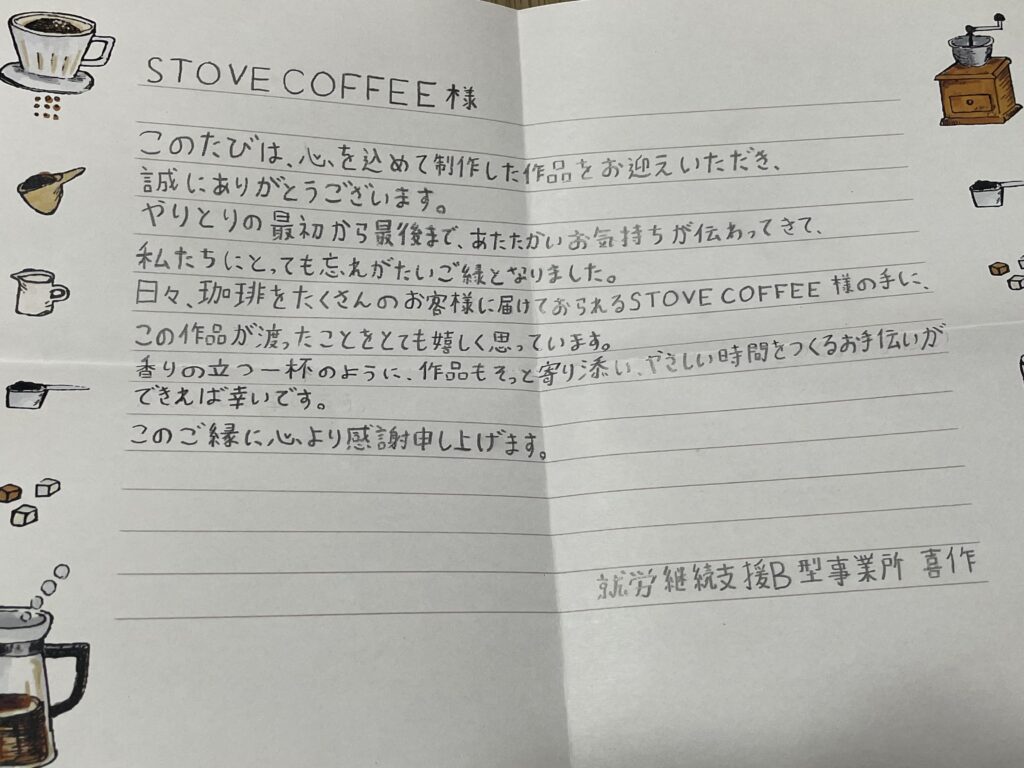 STOVE COFFEE 様
このたびは、心を込めて制作した作品をお迎えいただき、
誠にありがとうございます。
やりとりの最初から最後まで、あたたかいお気持ちが伝わってきて、
私たちにとっても忘れがたいご縁となりました。
日々、珈琲をたくさんのお客様に届けておられるSTOVE COFFEE 様の手に、
この作品が渡ったことをとても嬉しく思っています。
香りの立つ一杯のように、作品もそっと寄り添い、やさしい時間をつくるお手伝いが
できれば幸いです。
このご縁に心より感謝申し上げます。
就労継続支援B型事業所 喜作